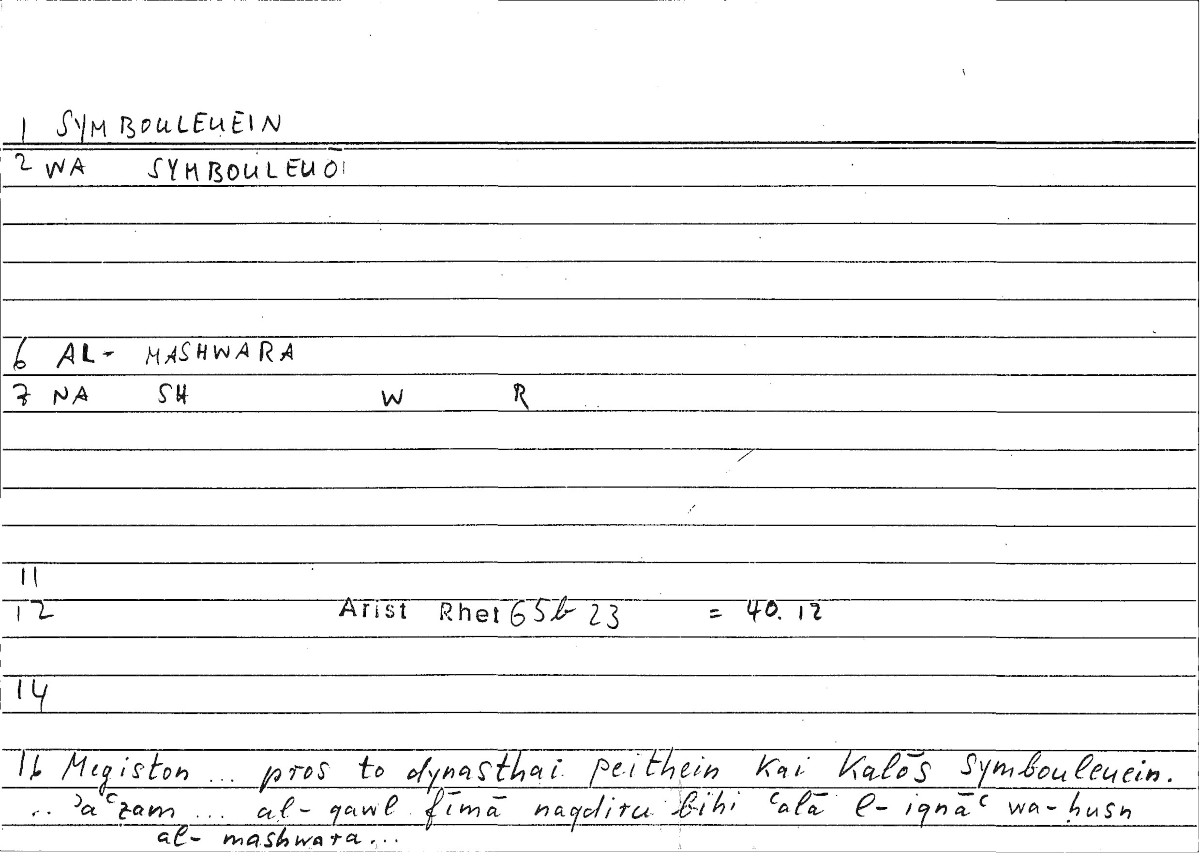 1 SYMBOULEUEIN
2 WA SYMBOULEUŌ
6 AL- MASHWARA
7 NA SH W R
11
12 Arist Rhet 65b 23 = 40.12
14
16 Megiston ... pros to dynasthai peithein kai kalōs symbouleuein.
.. ʾaʿẓam ... al-qawl fīmā naqdiru bihi ʿalā l-iqnāʿ wa-ḥusn
al-mashwara...